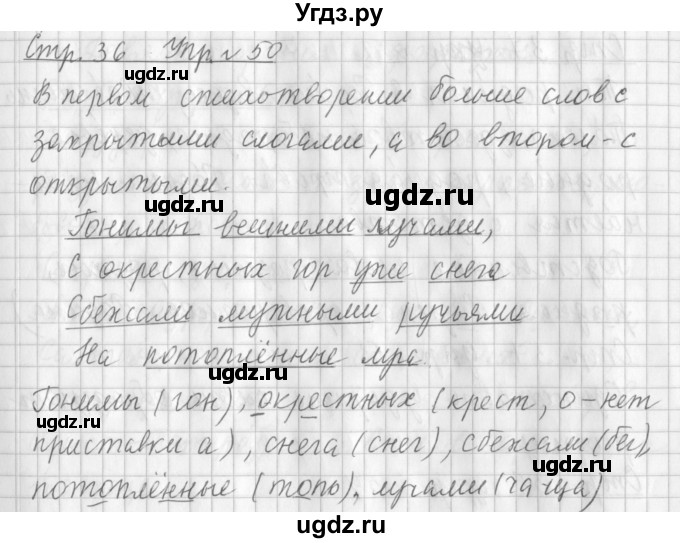 Угдз.ру
Стр. 36 Упр № 50
ugdz.ru ugdz.ru
В первом стихотворении больше слов с
закрытыми слогами, а во втором - с
открытыми.
ugdz.ru ugdz.ru
Гонимы вешними лучами,
С окрестных гор уже снега
Сбежали мутными ручьями
На потоплённые луга.
ugdz.ru ugdz.ru
Гонимы (гон), окрестных (крест, о - нет
приставки а), снега (снег), сбежали (бег),
ugdz.ru ugdz.ru
потоплённые (топь), лучами (ча-ща)
ugdz.ru